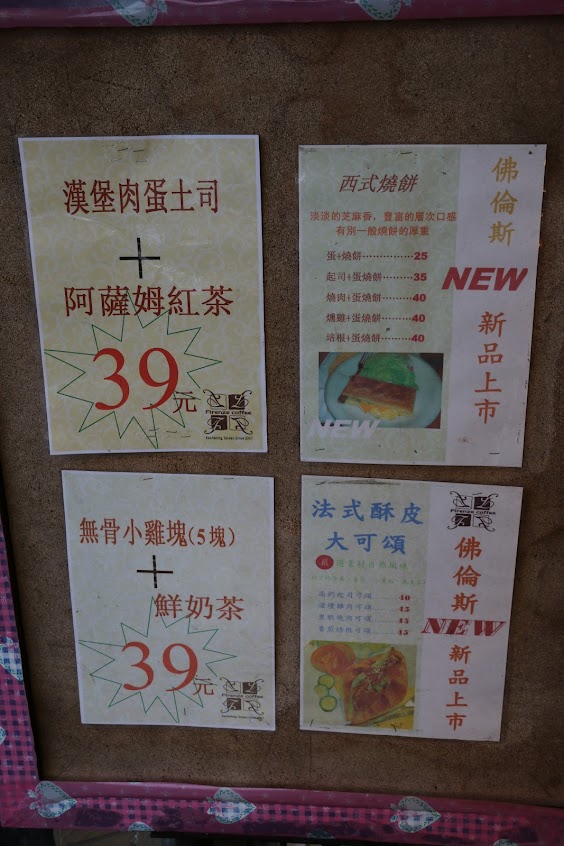 漢堡肉蛋土司
+
阿薩姆紅茶
39元
Firenze coffee
無骨小雞塊(5塊)
+
鮮奶茶
39元
Firenze coffee
西式燒餅
淡淡的芝麻香，豐富的層次口感
有別一般燒餅的厚重
蛋+燒餅················25
起司+蛋燒餅·········35
燒肉+蛋燒餅·········40
燻雞+蛋燒餅·········40
培根+蛋燒餅·········40
NEW
佛倫斯
NEW
新品上市
法式酥皮
大可頌
40
45
45
45
Firenze coffee
佛倫斯
NEW
新品上市